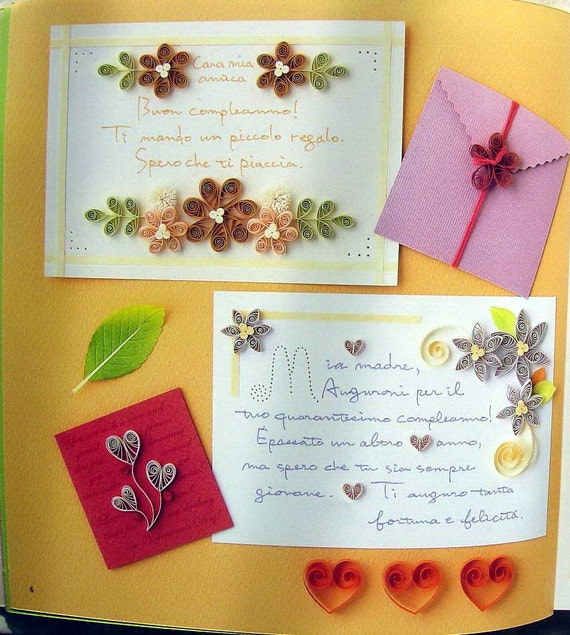 Cara mia
amica
Buon compleanno!
Ti mando un piccolo regalo.
Spero che ti piaccia.
Mia madre,
Auguroni per il
tuo quarantesimo compleanno!
Épassato un altro anno,
ma spero che tu sia sempre
giovane. Ti auguro tanta
fortuna e felicitá.
6